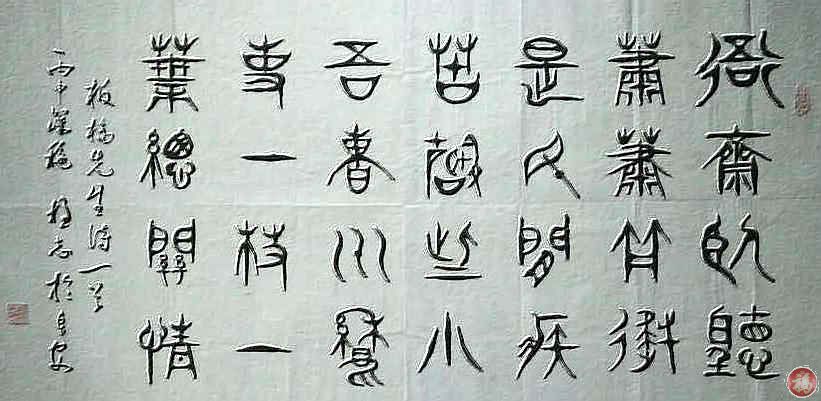 衙齋臥聽
蕭蕭竹疑
是民間疾
苦聲些小
吾曹州縣
吏一枝一
葉總關情
板橋先生詩一首
丙申 秋 志於
福